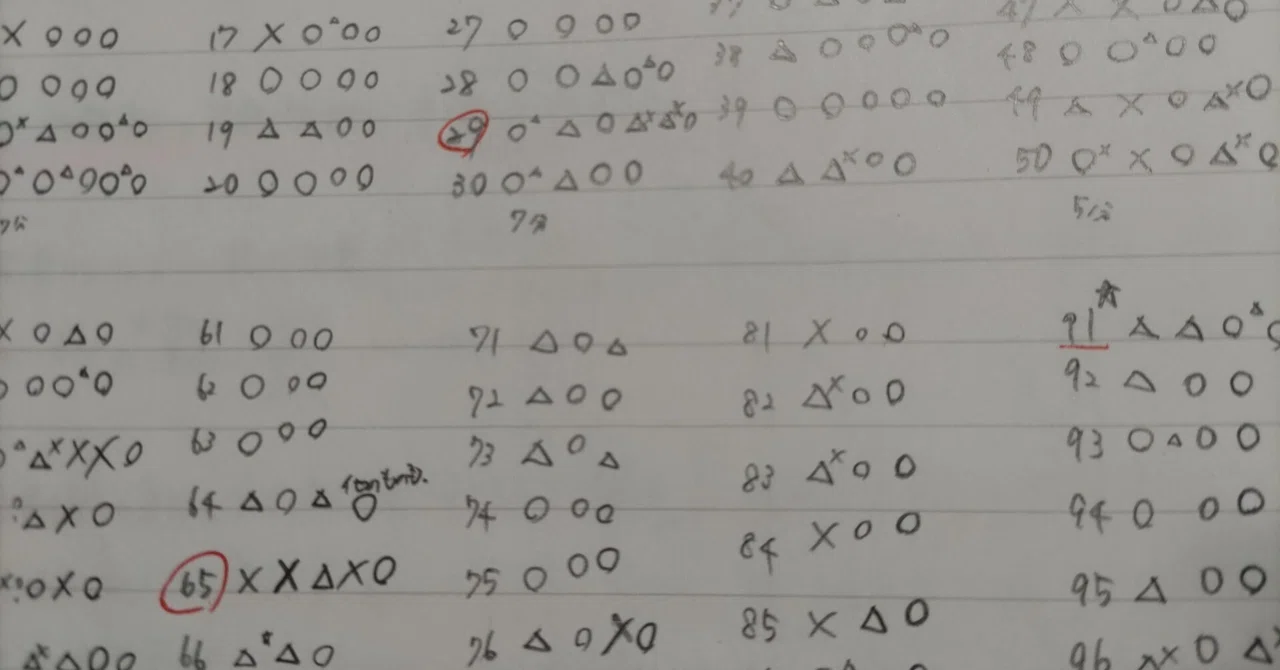 X O O O 17 X O △ O O 27 O O O O
O O O O 18 O O O O 28 O O △ O △ O 38 △ O O O △ O 48 O O △ O O
O X △ O O △ O 19 △ △ O O 29 O △ △ O △ X △ X O 39 O O O O O 49 △ X O △ X O
O △ O △ O O △ O 20 O O O O 30 O △ △ O O 40 △ △ X O O 50 O X X O △ X O
7分 5分
X O △ O 61 O O O 71 △ O △ 81 X O O 91 ☆ △ △ O △
O O O △ O 62 O O O 72 △ O O 82 △ X O O 92 △ O O
O △ △ X X X O 63 O O O 73 △ O △ 83 △ X O O 93 O △ O O
△ X O 64 △ O △ O 74 O O O 84 X O O 94 O O O
O X O 65 X X △ X O 75 O O O 85 X △ O 95 △ O O
△ X △ O O 66 △ X △ O 76 △ O X X O 96